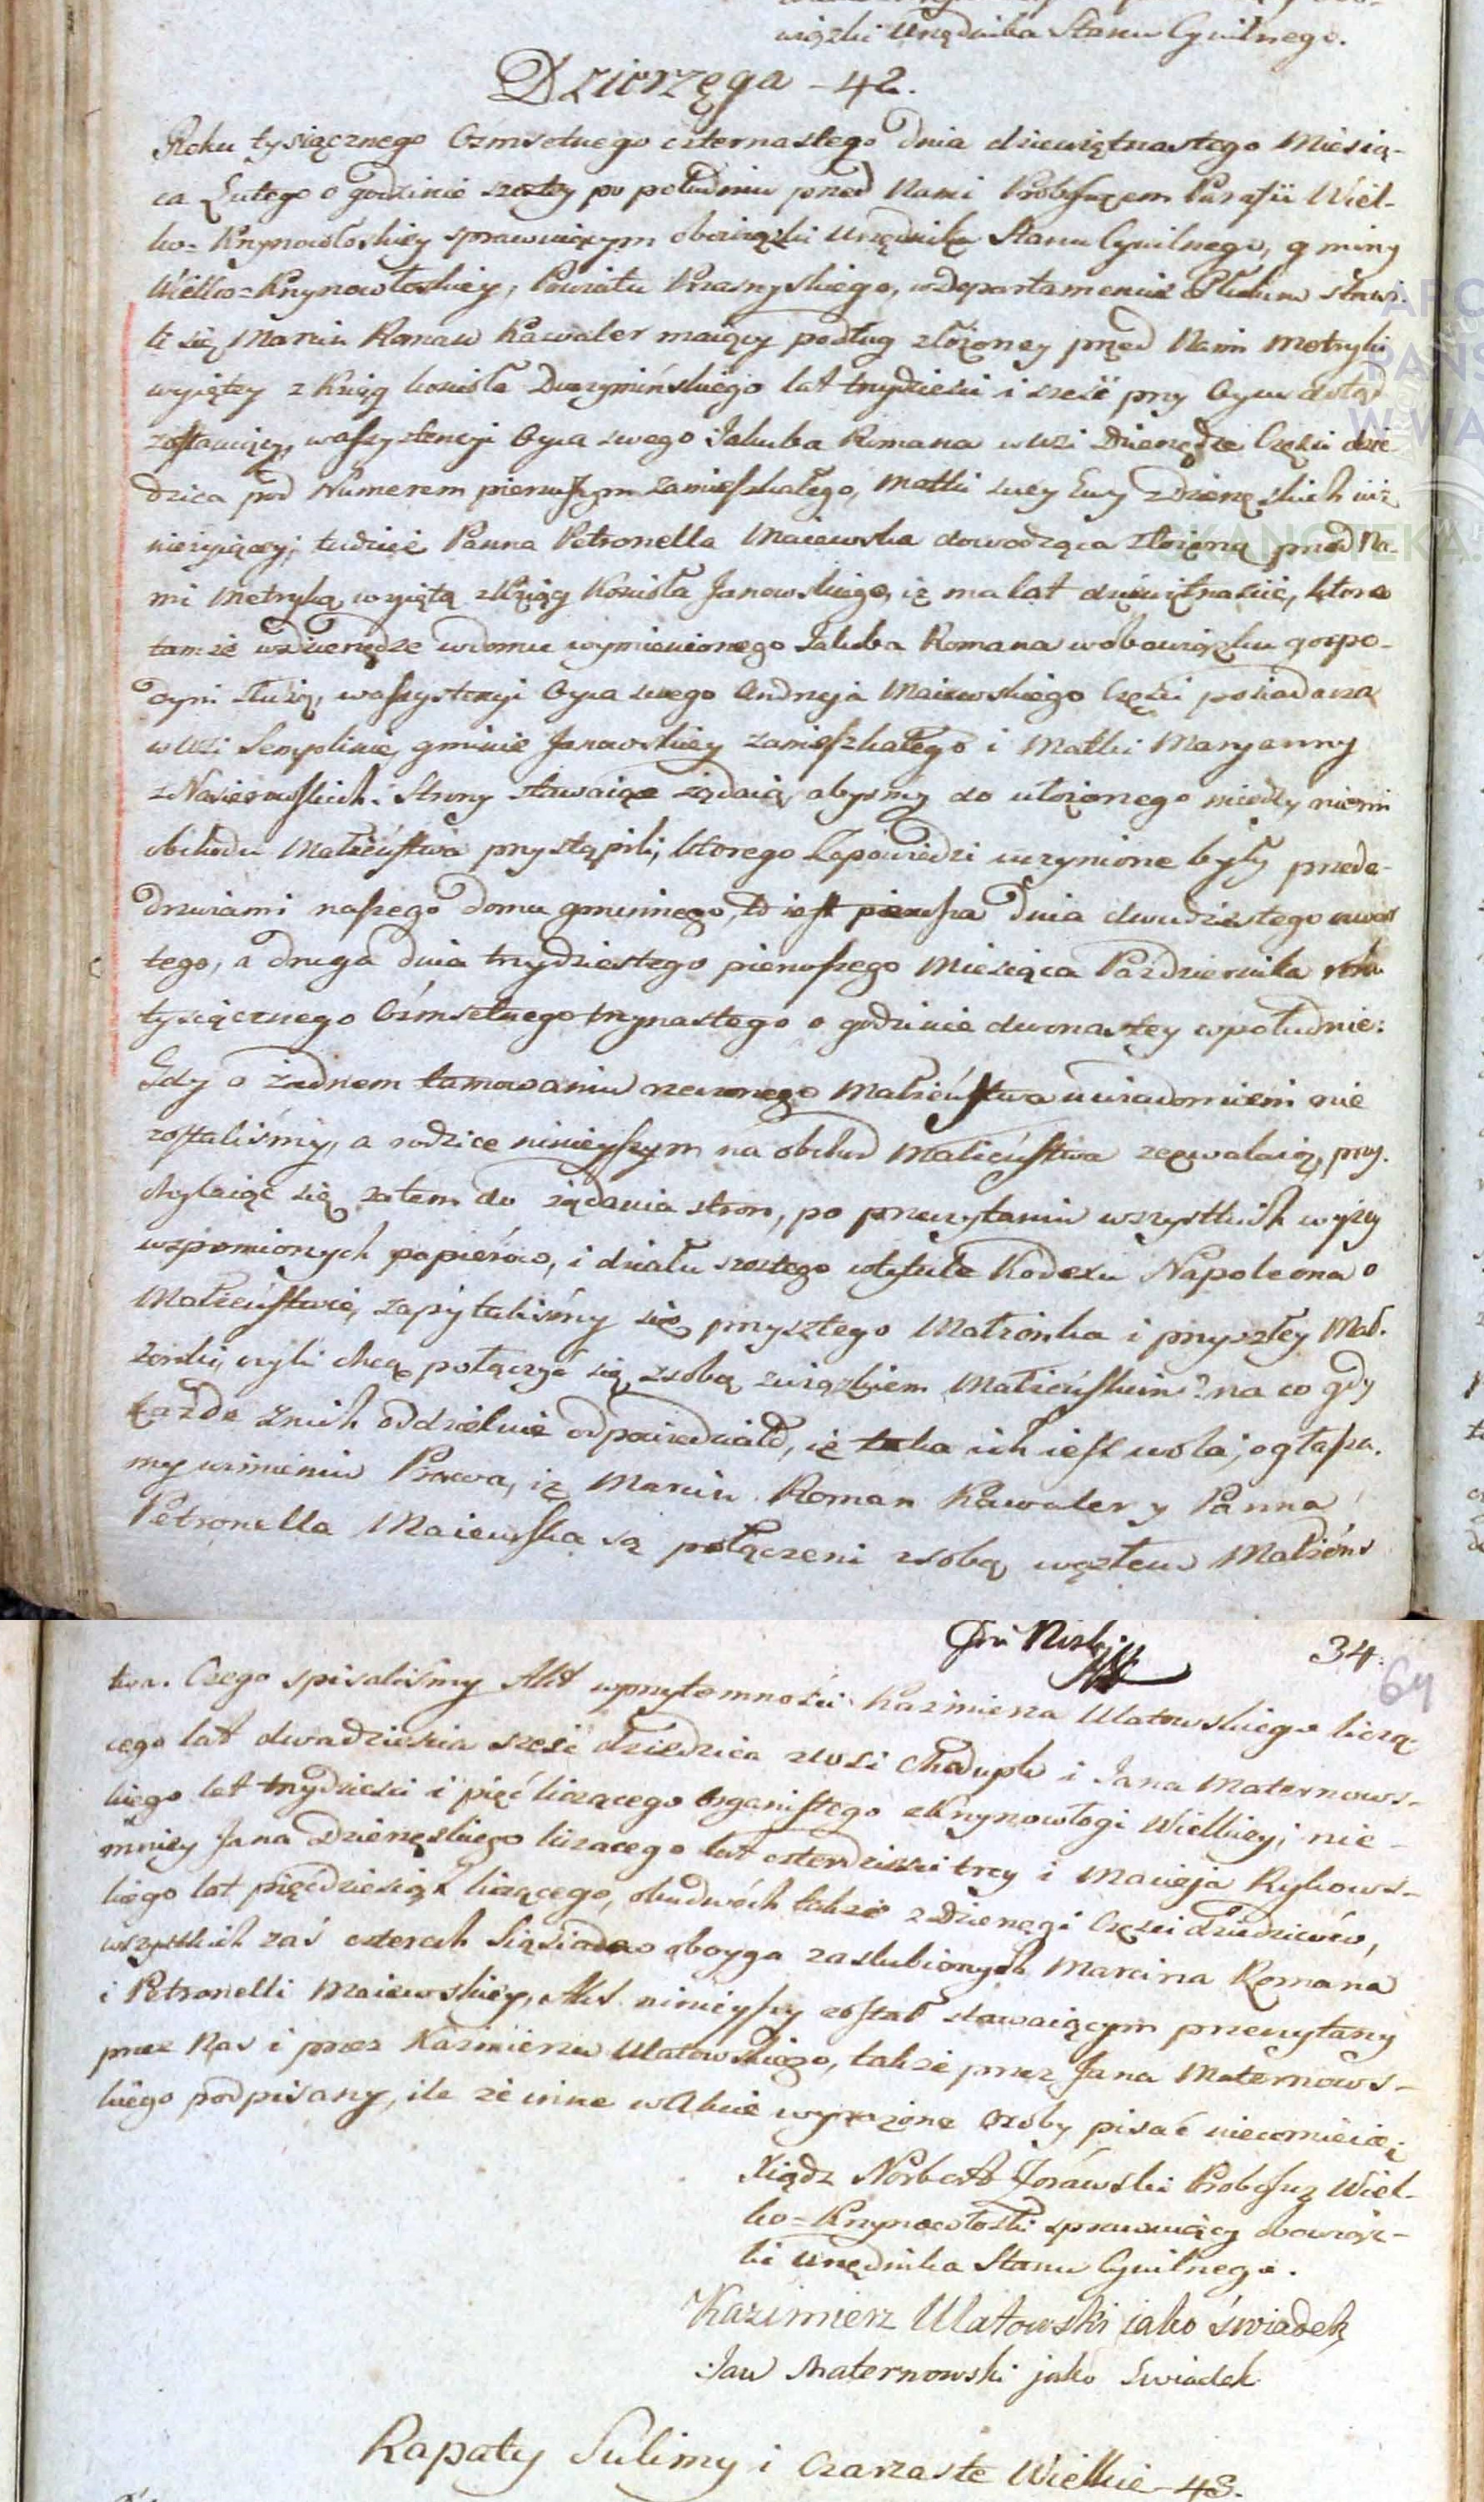 wiązki Urzędnika Stanu Cywilnego.
Dzierzęga - 42.
Roku tysiącznego Ośmsetnego czternastego Dnia dziewiętnastego Miesią-
ca Lutego o godzinie szostey po południu przed Nami Proboszczem Parafii Wiel-
ko=Krzynowłoskiey sprawuiącym obowiązki Urzędnika Stanu Cywilnego, gminy
Wielko=Krzynowłoskiey, Powiatu Przasnyskiego, w Departamencie Płockim stawi-
li się Marcin Roman Kawaler maiący podług złożoney przed Nami Metryki
wyiętey z Xiąg kościoła Duczymińskiego lat trzydzieści i sześć przy Oycu dotąd
zostaiący, w assystencyi Oyca swego Jakuba Romana w wsi Dzierzędze Części dzie-
dzica pod Numerem pierwszym zamieszkałego, Matki swey Ewy z Dzierzęskich iuż
nieżyiącey; tudzież Panna Petronella Maiewska dowodząca złożoną przed Na-
mi Metryką wyiętą z Xiąg Kościoła Janowskiego, iż ma lat dziewiętnaście, która
tamże w Dzierzędze w domu wymienionego Jakuba Romana w obowiązku gospo-
dyni służą, w assystencyi Oyca swego Andrzeja Maiewskiego Części posiadacza
w wsi Sempolinie gminie Janowskiey zamieszkałego i Matki Maryanny
z Nasierowskich. Strony stawaiące żądaią, abyśmy do ułożonego między niemi
obchodu Małżeństwa przystąpili, którego Zapowiedzi uczynione były przede-
drzwiami naszego domu gminnego, to iest pierwsza Dnia dwudziestego czwar
tego, a druga dnia trzydziestego pierwszego Miesiąca Pazdziernika roku
tysiącznego Ośmsetnego trzynastego o godzinie dwunastey w południe:
Gdy o żadnem tamowaniu rzeczonego Małżeństwa uwiadomieni nie
zostaliśmy, a rodzice ninieyszym na obchód Małżeństwa zezwalaią, przy-
chylaiąc się zatem do żądania stron, po przeczytaniu wszystkich wyżey
wspomionych papierów, i działu szostego w tytule Kodexu Napoleona o
Małżeństwie, zapytaliśmy się przyszłego Małżonka i przyszłey Mał-
żonki, czyli chcą połączyć się z sobą związkiem Małżeńskim? na co gdy
każde z nich oddzielnie odpowiedziało, iż taka ich iest wola; ogłasza-
my w imieniu Prawa, iż Marcin Roman Kawaler y Panna
Petronella Maiewska są połączeni z sobą węzłem Małżeńs
34.
64
twa. Czego spisaliśmy Akt w przytomności Kazimierza Ulatowskiego liczą-
cego lat dwadzieścia sześć dziedzica z wsi Chodupk i Jana Maternows-
kiego lat trzydzieści i pięć liczącego Organistego z Krzynowłogi Wielkiey; nie-
mniey Jana Dzierzęskiego liczącego lat czterdzieści trzy i Macieja Rykows-
kiego lat pięćdziesiąt liczącego, obudwóch także z Dzierzęgi Części dziedziców,
wszystkich zaś czterech Sąsiadów oboyga zaslubionych Marcina Romana
i Petronelli Maiewskiey, Akt ninieyszy został stawaiącym przeczytany
przez Nas i przez Kazimierza Ulatowskiego, także przez Jana Maternows-
kiego podpisany, ile że inne w Akcie wyrażone osoby pisać nieumieią;
Xiądz Norbert Jórawski Proboszcz Wiel-
ko=Krzynowłoski sprawuiący obowiąz-
ki Urzędnika Stanu Cywilnego.
Kazimierz Ulatowski jako świadek
Jan Maternowski jako Swiadek
Rapaty Sulimy i Czarzaste Wielkie - 43.